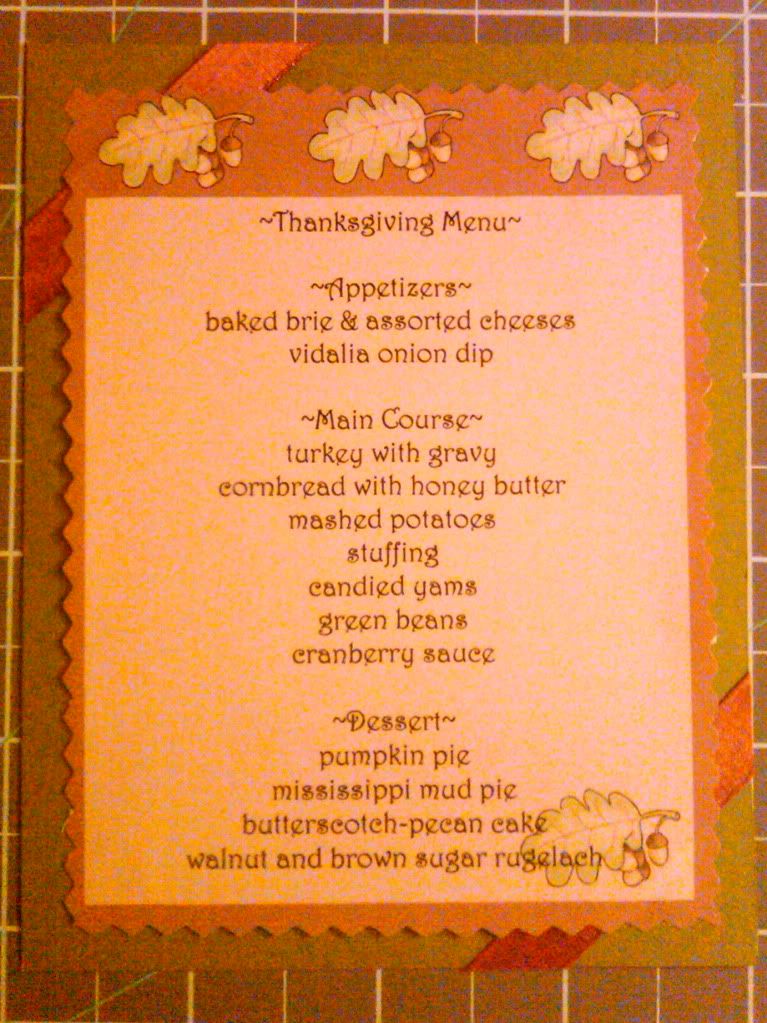 ~Thanksgiving Menu~
~Appetizers~
baked brie & assorted cheeses
vidalia onion dip
~Main Course~
turkey with gravy
cornbread with honey butter
mashed potatoes
stuffing
candied yams
green beans
cranberry sauce
~Dessert~
pumpkin pie
mississippi mud pie
butterscotch-pecan cake
walnut and brown sugar rugelach